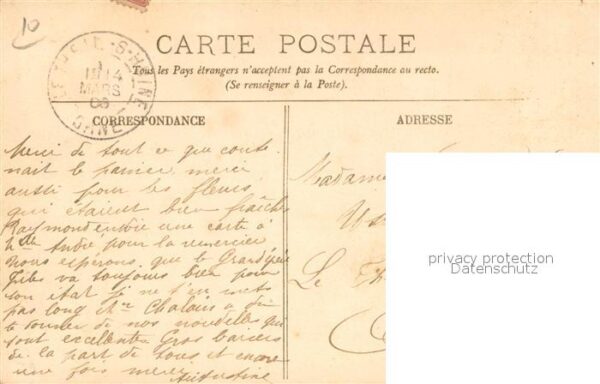 10
CARTE POSTALE
Tous les Pays étrangers n'acceptent pas la Correspondance au recto.
(Se renseigner à la Poste).
14
MARS
06
ORNE
CORRESPONDANCE
ADRESSE
Merci de tout ce que conte
nait le panier merci
aussi pour les fleurs
qui étaient bien fraîches
Raymond envoie une carte à
pour la remercier
Nous espérons que le Grand père
Gilles va toujours bien pour
son état je ne t'en mets
pas long Mr Chalois a dû
te donner de nos nouvelles qui
sont excellentes Gros baisers
de la part de tous et encore
une fois merci
Augustine
Madame
Us
Le Th
privacy protection
Datenschutz